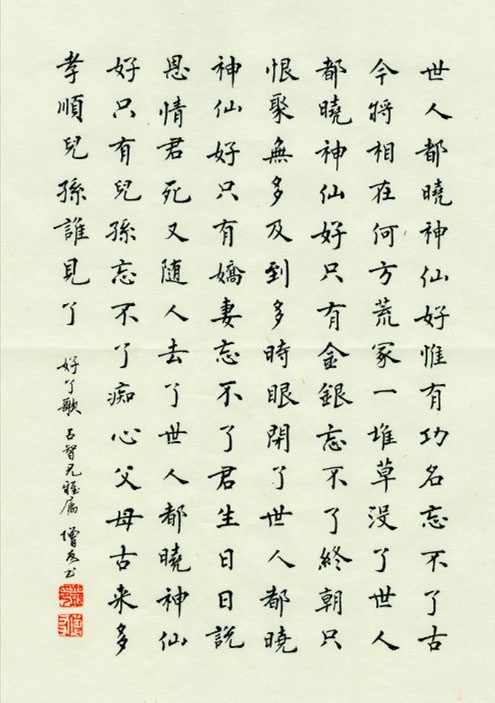 世人都曉神仙好惟有功名忘不了古
今將相在何方荒冢一堆草没了世人
都曉神仙好只有金銀忘不了終朝只
恨聚無多及到多時眼閉了世人都曉
神仙好只有嬌妻忘不了君生日日説
恩情君死又随人去了世人都曉神仙
好只有兒孫忘不了痴心父母古来多
孝順兒孫誰見了
好了歌 智兄雅属 書